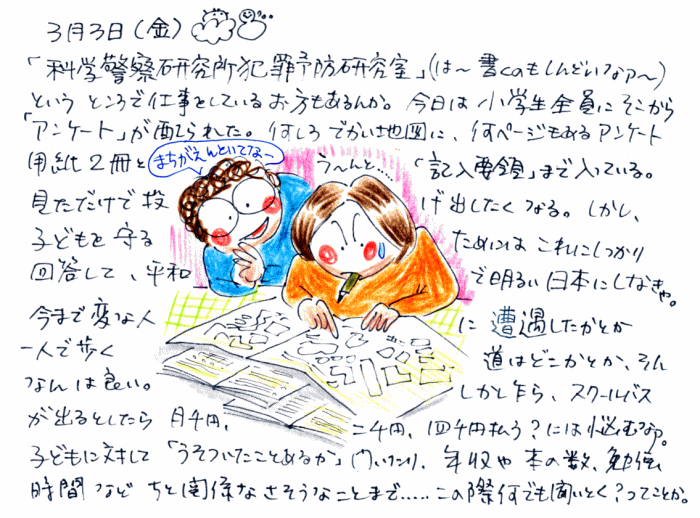 3月3日(金)
「科学警察研究所犯罪予防研究室」(は〜書くのもしんどいなァ〜)
という ところで仕事をしているお方もあるんか。今日は小学生全員にそこから
「アンケート」が配られた。何しろでかい地図に、何ページもあるアンケート
用紙2冊と
まちがえんといてな〜
う〜んと....
「記入要領」まで入っている。
見ただけで投げ出したくなる。しかし、
子どもを守るためにはこれにしっかり
回答して、平和で明るい日本にしなきゃ。
今まで変な人に遭遇したかとか
一人で歩く道はどこかとか、そん
なんは良い。しかし乍ら、スクールバス
が出るとしたら月千円、二千円、四千円払う?には悩むなァ。
子どもに対して「うそついたことあるか」きいたり、年収や本の数、勉強
時間など ちと関係なさそうなことまで.....この際何でも聞いとく?ってことか。